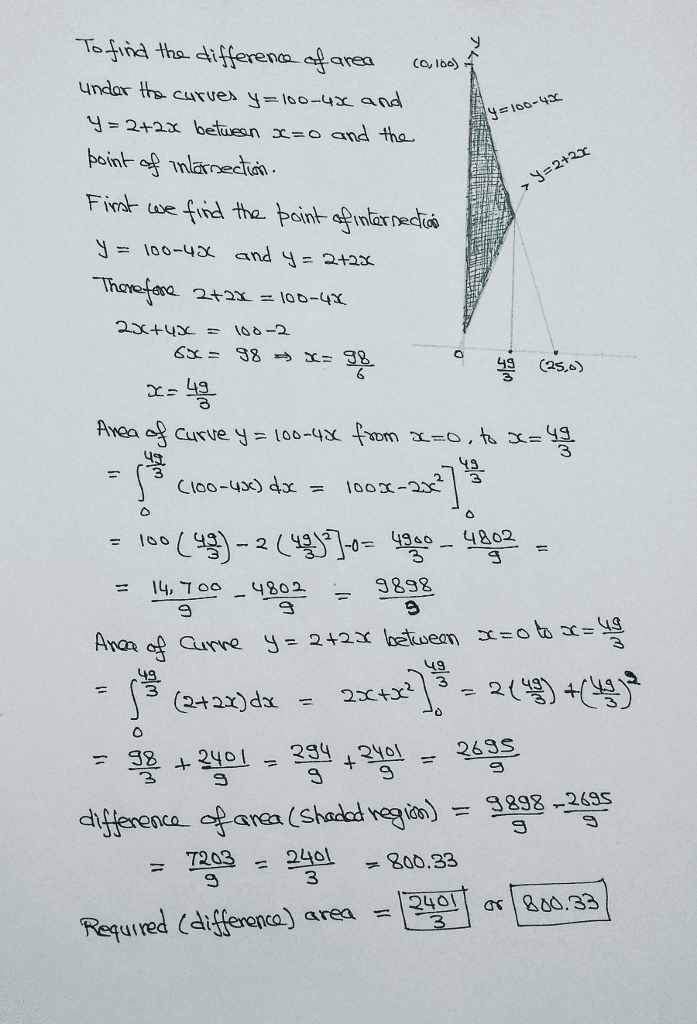 To find the difference of area
under the curves y=100-4x and
y = 2+2x between x=0 and the
point of intersection.
First we find the point of intersection
y = 100-4x and y = 2+2x
Therefore 2+2x = 100-4x
2x+4x = 100-2
6x = 98 ⇒ x= 98/6
x= 49/3
y
(0,100)
y=100-4x
y=2+2x
0
49/3
(25,0)
Area of curve y = 100-4x from x=0, to x= 49/3
= ∫₀^(49/3) (100-4x) dx = 100x-2x² ]₀^(49/3)
= 100(49/3) - 2(49/3)²]-0 = 4900/3 - 4802/9 =
= 14,700/9 - 4802/9 = 9898/9
Area of Curve y = 2+2x between x=0 to x= 49/3
= ∫₀^(49/3) (2+2x)dx = 2x+x² ]₀^(49/3) = 2(49/3) + (49/3)²
= 98/3 + 2401/9 = 294/9 + 2401/9 = 2695/9
difference of area (shaded region) = 9898/9 - 2695/9
= 7203/9 = 2401/3 = 800.33
Required (difference) area = 2401/3 or 800.33